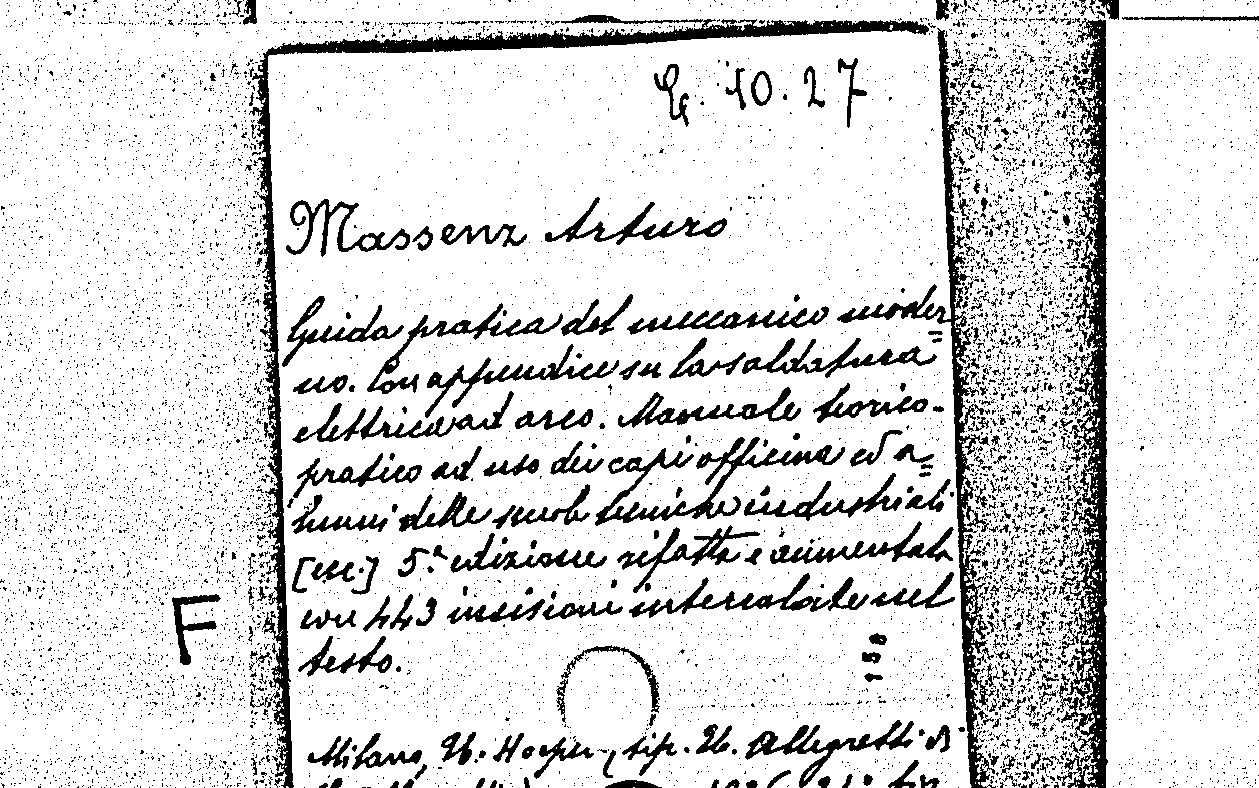 G. 10. 27
Massenz Arturo
Guida pratica del meccanico moder=
no. Con appendice su la saldatura
elettrica ad arco. Manuale teorico-
pratico ad uso dei capi officina ed a=
lunni delle scuole tecniche industriali
[ecc.] 5.ª edizione rifatta e aumentata
con 443 incisioni intercalate nel
testo.
F
158
Milano, U. Hoepli, tip. U. Allegretti di